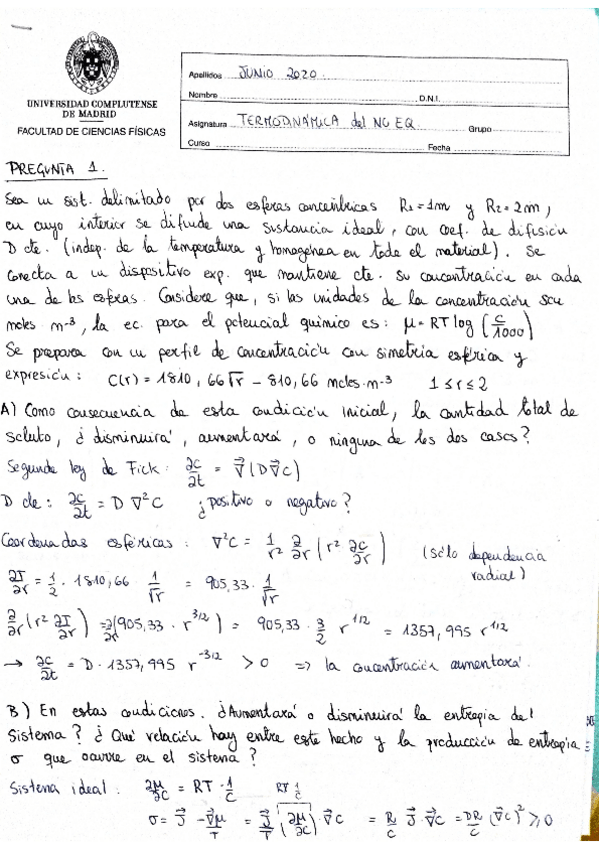 UNIVERSIDAD COMPLUTENSE
DE MADRID
FACULTAD DE CIENCIAS FÍSICAS
Apellidos JUNIO 2020.
Nombre D.N.I.
Asignatura TERMODINÁMICA del NO EQ Grupo
Curso Fecha
PREGUNTA 1.
Sea un sist. delimitado por dos esferas concéntricas R₁=1m y R₂=2m,
en cuyo interior se difunde una sustancia ideal, con coef. de difusión
D cte. (indep. de la temperatura y homogénea en todo el material). Se
conecta a un dispositivo exp. que mantiene cte. su concentración en cada
una de las esferas. Considere que, si las unidades de la concentración son
moles m⁻³, la ec. para el potencial químico es: μ = RT log (c/1000)
Se prepara con un perfil de concentración con simetría esférica y
expresión: C(r) = 1810,66√r − 810,66 moles·m⁻³ 1≤r≤2
A) Como consecuencia de esta condición inicial, la cantidad total de
soluto, ¿disminuirá, aumentará, o ninguna de los dos casos?
Segunda ley de Fick: ∂c/∂t = ∇⃗(D∇⃗c)
D cte: ∂c/∂t = D ∇²C ¿positivo o negativo?
Coordenadas esféricas: ∇²C = 1/r² ∂/∂r (r² ∂c/∂r) (sólo dependencia
radial)
∂T/∂r = 1/2 · 1810,66 · 1/√r = 905,33 · 1/√r
∂/∂r (r² ∂T/∂r) = ∂/∂r (905,33 · r^3/2) = 905,33 · 3/2 r^1/2 = 1357,995 r^1/2
→ ∂c/∂t = D · 1357,995 r^-3/2 > 0 ⇒ la concentración aumentará.
B) En estas condiciones. ¿Aumentará o disminuirá la entropía del
sistema? ¿Qué relación hay entre este hecho y la producción de entropía
σ que ocurre en el sistema?
Sistema ideal: ∂μ/∂c = RT · 1/c RT 1/c
σ = J⃗ · −∇⃗μ/T = J⃗/T (∂μ/∂c) · ∇⃗c = R/c J⃗ · ∇⃗c = DR/c (∇⃗c)² ≥ 0